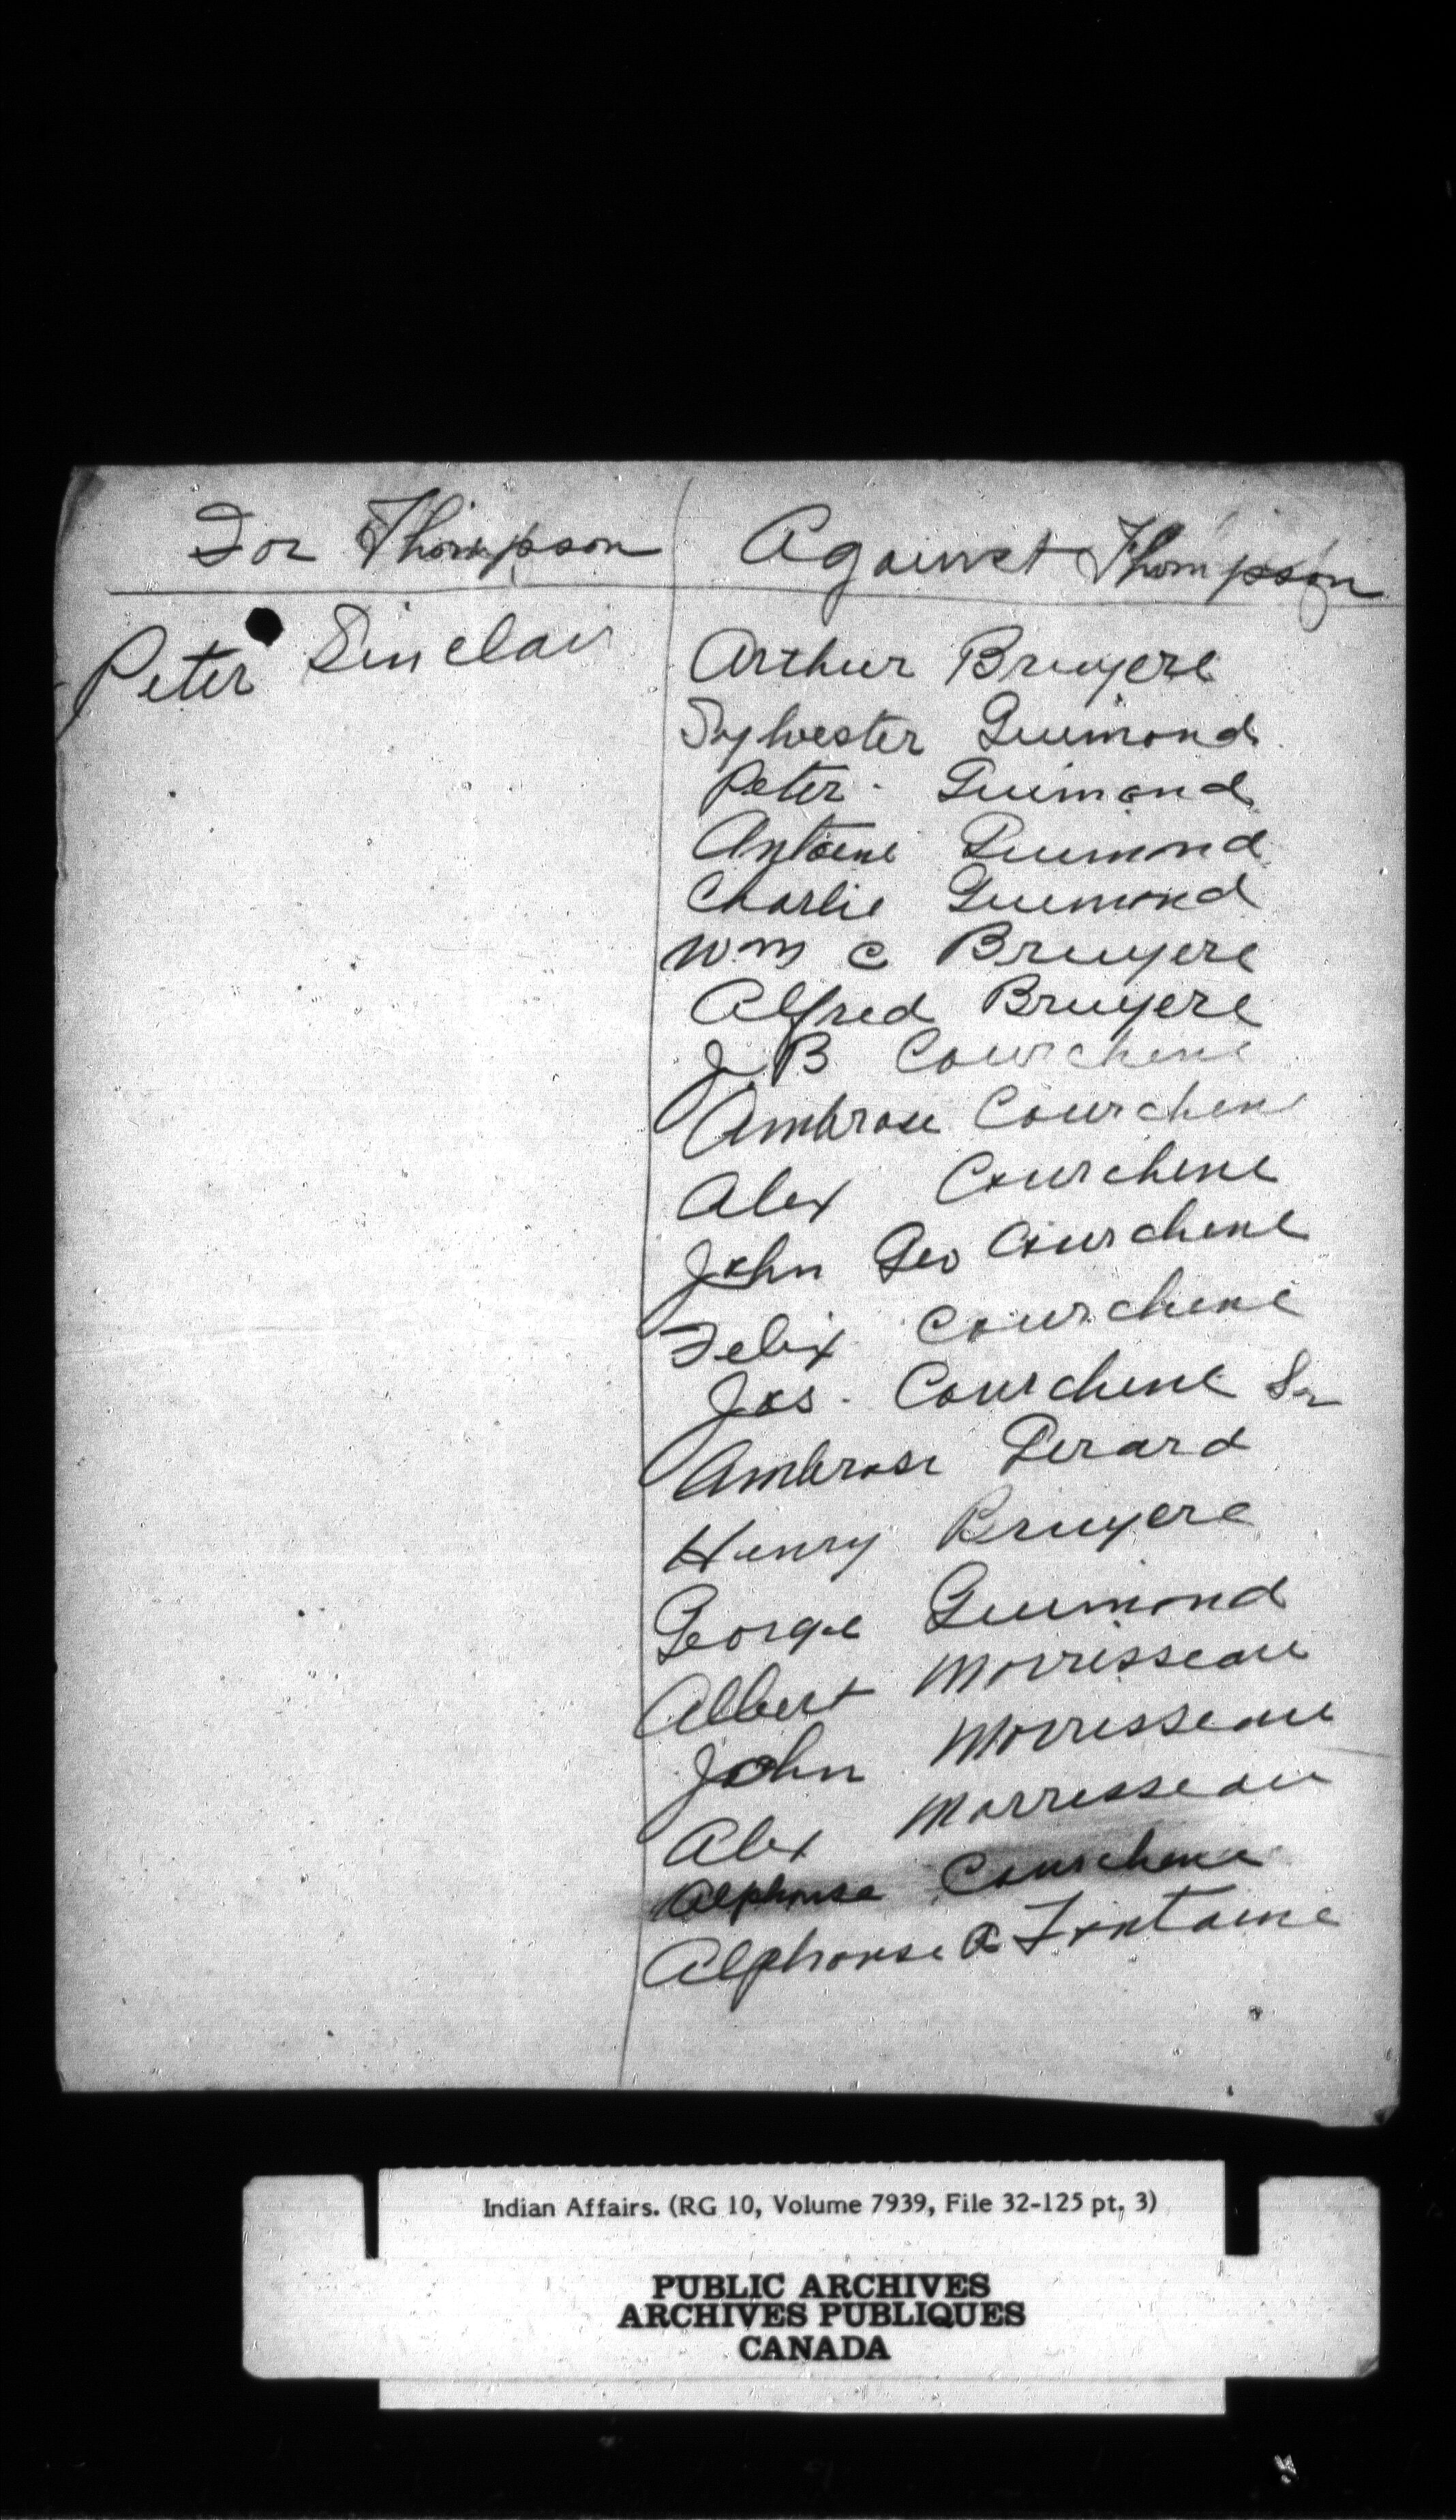 For Thompson
Against Thompson
Peter Sinclair
Arthur Bruyere
Sylvester Guimond
Peter Guimond
Antoine Guimond
Charlie Guimond
Wm C Bruyere
Alfred Bruyere
J B Courchene
Ambrose Courchene
Alex Courchene
John Geo Courchene
Felix Courchene
Jos. Courchene Sr
Ambrose Gerard
Henry Bruyere
George Guimond
Albert Morrisseau
John Morrisseau
Alex Morrisseau
Alphonse Courchene
Alphonse Fontaine
Indian Affairs. (RG 10, Volume 7939, File 32-125 pt. 3)
PUBLIC ARCHIVES
ARCHIVES PUBLIQUES
CANADA